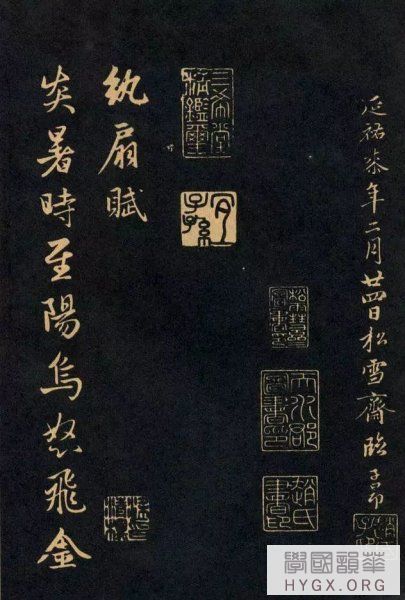 延祐叅年二月廿四日松雪齋臨 子昂
天水郡圖書印
趙氏書印
三希堂精鑑璽
宜子孫
紈扇賦
炎暑時至陽烏怒飛金
學國韻華
HYGX.ORG